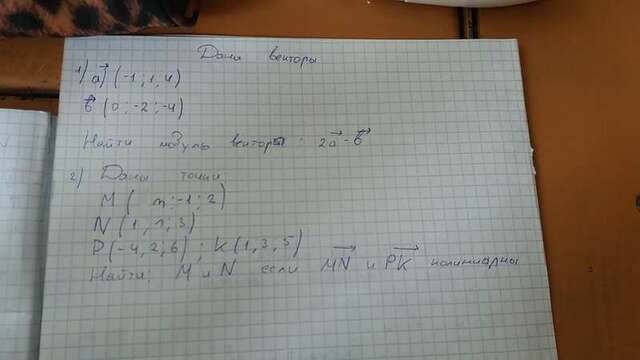 Даны векторы
1) a⃗ (-1; 1; 4)
b⃗ (0; -2; -4)
Найти модуль вектора: 2a⃗ - b⃗
2) Даны точки
M ( m; -1; 2)
N (1; n; 3)
P (-4; 2; 6); K (1; 3; 5)
Найти: M и N если MN⃗ и PK⃗ коллинеарны